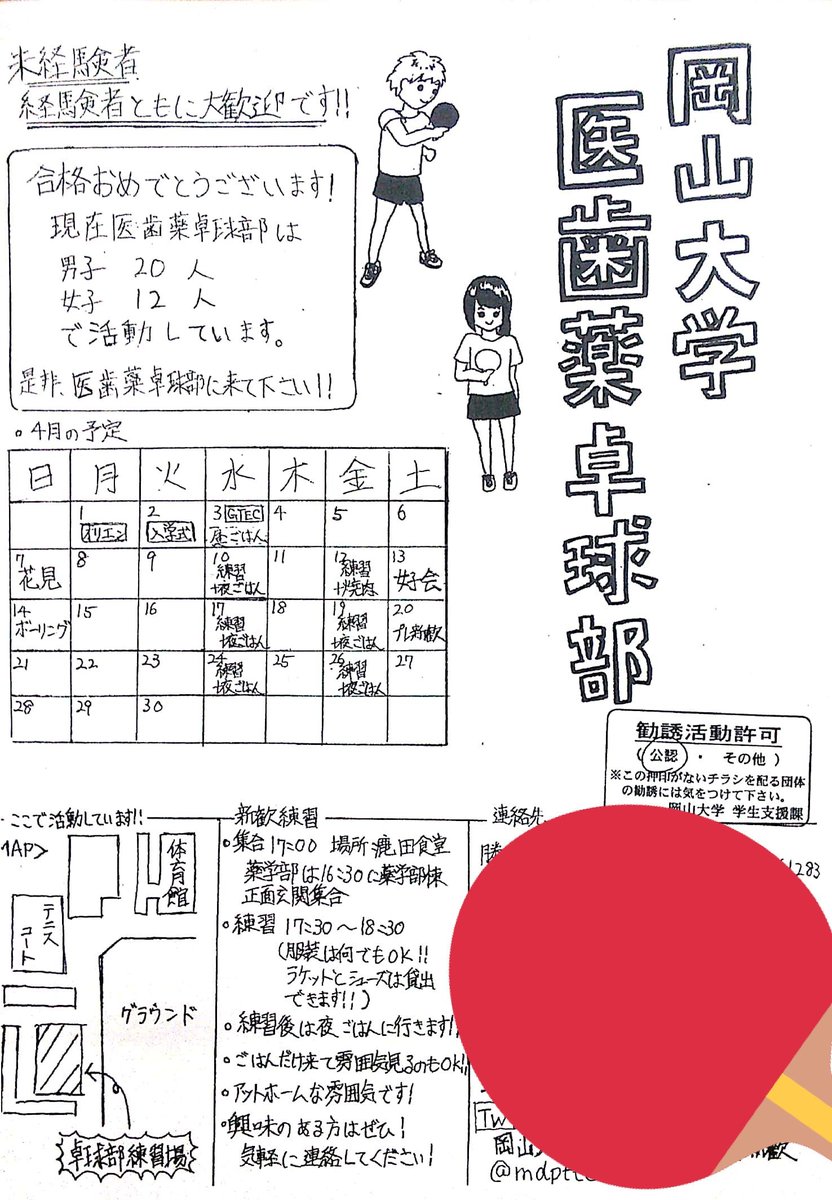 岡山大学
医歯薬卓球部
未経験者
経験者ともに大歓迎です!!
合格おめでとうございます!
現在医歯薬卓球部は
男子 20人
女子 12人
で活動しています。
是非、医歯薬卓球部に来て下さい!!
。4月の予定
日 月 火 水 木 金 土
1 オリエン 2 入学式 3 GTEC 昼ごはん 4 5 6
7 花見 8 9 10 練習+夜ごはん 11 12 練習+焼肉 13 女子会
14 ボーリング 15 16 17 練習+夜ごはん 18 19 練習+夜ごはん 20 プレ新歓
21 22 23 24 練習+夜ごはん 25 26 練習+夜ごはん 27
28 29 30
勧誘活動許可
(公認・その他)
※この押印がないチラシを配る団体
の勧誘には気をつけて下さい。
岡山大学 学生支援課
ここで活動しています!!
MAP>
体育館
テニスコート
グラウンド
卓球部練習場
新歓練習
。集合17:00 場所:鹿田食堂
薬学部は16:30に薬学部棟
正面玄関集合
。練習 17:30〜18:30
(服装は何でもOK!!
ラケットとシューズは貸出
できます!!)
。練習後は夜ごはんに行きます!!
。ごはんだけ来て雰囲気見るのもOK!!
。アットホームな雰囲気です!
。興味のある方はぜひ!
気軽に連絡してください!
連絡先
勝
1283
Tw
岡山
歓
@mdptt